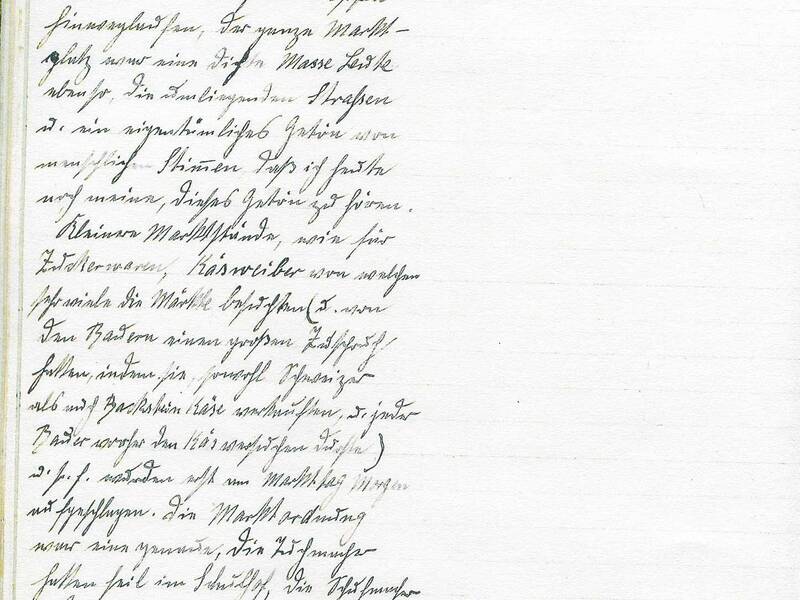 hinweglaufen, der ganze Markt-
platz war eine dichte Masse Leute
ebenso, die umliegenden Straßen
u. ein eigentümliches Getön von
menschlichen Stimmen, daß ich heute
noch meine, dieses Getön zu hören.
Kleinere Marktstände, wie für
Zuckerwaren, Käsweiber von welchen
sehr viele die Märkte besuchten (u. von
den Bauern einen großen Zuspruch
hatten, indem sie, sowohl Schweizer
als auch Backstein Käse verkauften, u. jeder
Bauer vorher den Käs versuchen durfte)
u. s. f. wurden erst am Markttag Morgen
aufgeschlagen. Die Marktordnung
war eine genaue, die Tuchmacher
hatten feil im Schulhof, die Schuhmacher